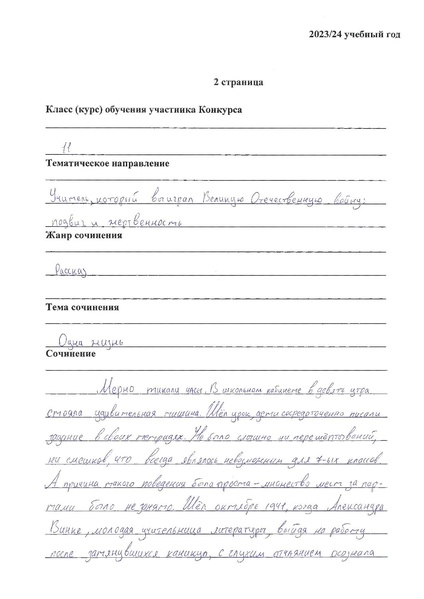 2023/24 учебный год
2 страница
Класс (курс) обучения участника Конкурса
11
Тематическое направление
Учитель, который выиграл Великую Отечественную войну:
подвиг и жертвенность
Жанр сочинения
Рассказ
Тема сочинения
Одна жизнь
Сочинение
Мерно тикали часы. В школьном кабинете в девять утра
стояла удивительная тишина. Шёл урок, дети сосредоточенно писали
задание в своих тетрадях. Не было слышно ни перешёптываний,
ни смешков, что всегда являлось невозможным для 7-ых классов.
А причина такого поведения была проста – множество мест за пар-
тами было не занято. Шёл октябрь 1941, когда Александра
Винке, молодая учительница литературы, выйдя на работу
после затянувшихся каникул, с глухим отчаянием осознала